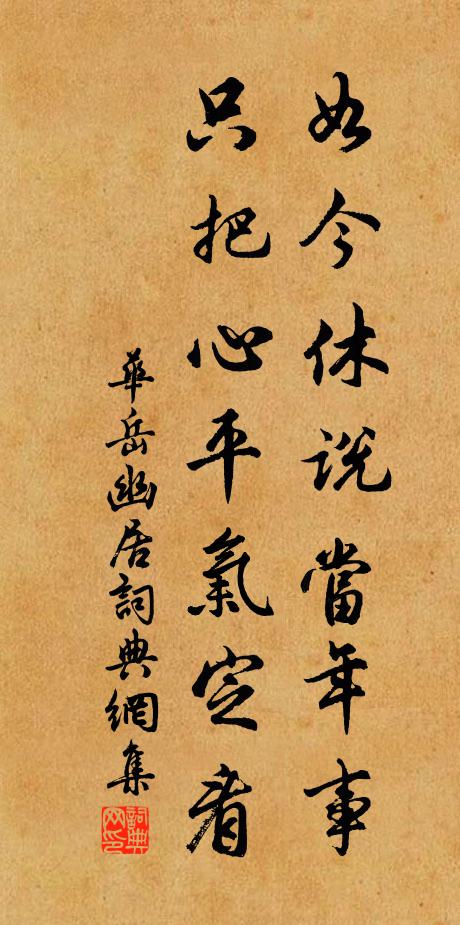 如今休說當年事
只把心平氣定看
華岳幽居詞典網集
詞典网印